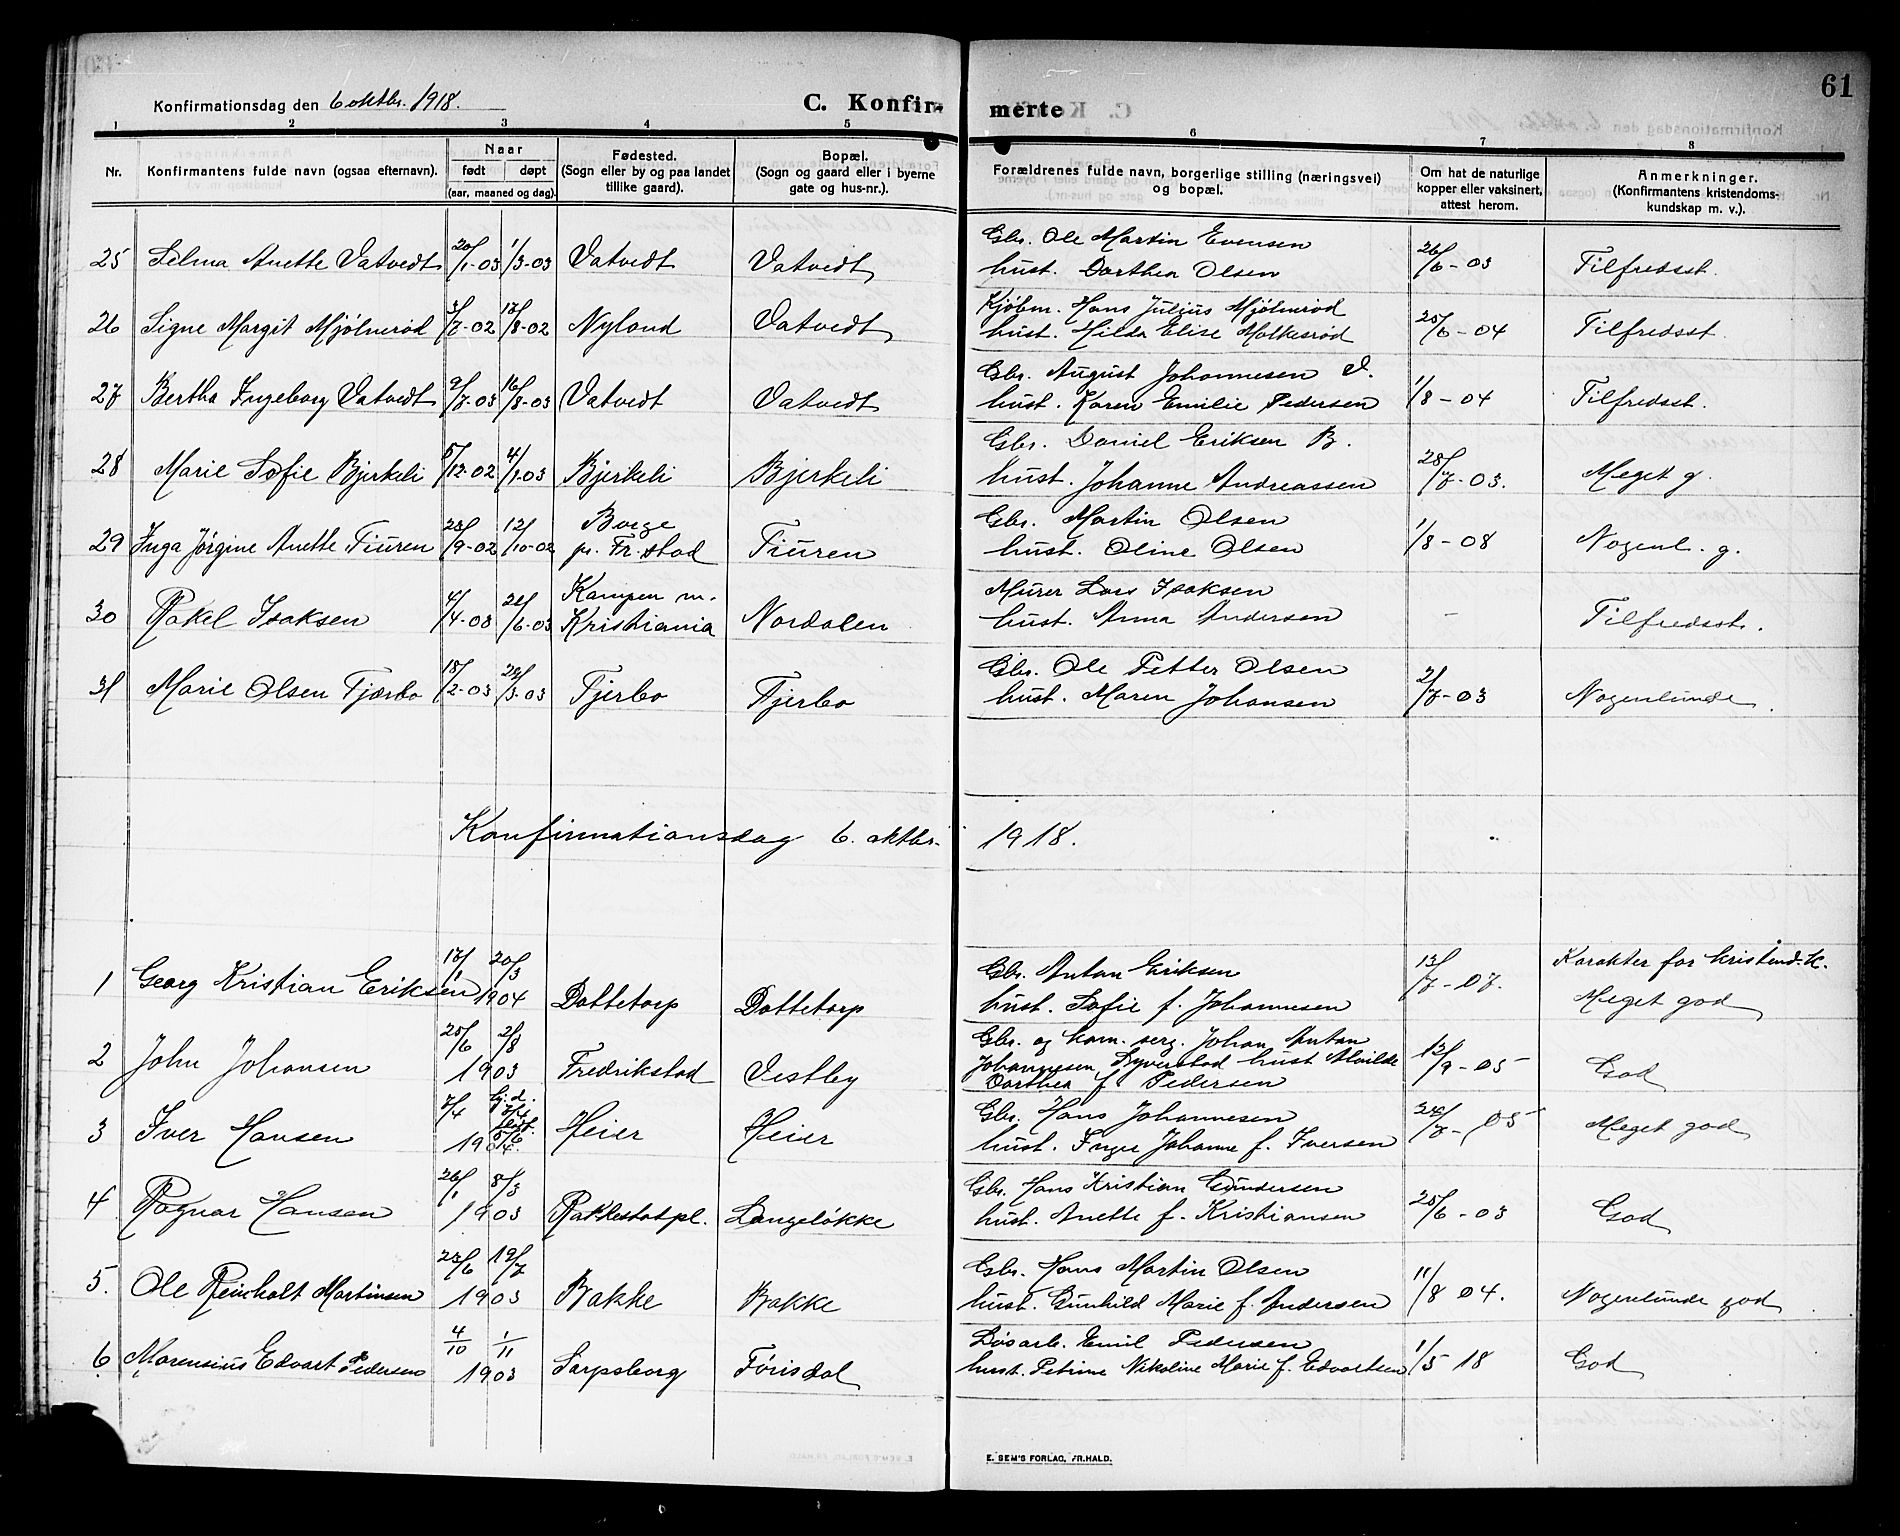 61
Konfirmationsdag den 6 oktbr. 1918.
C. Konfir- merte
1 2 3 4 5 6 7 8
Nr. Konfirmantens fulde navn (ogsaa efternavn). Naar født døpt (aar, maaned og dag). Fødested. (Sogn eller by og paa landet tillike gaard). Bopæl. (Sogn og gaard eller i byerne gate og hus-nr.). Forældrenes fulde navn, borgerlige stilling (næringsvei) og bopæl. Om hat de naturlige kopper eller vaksinert, attest herom. Anmerkninger. (Konfirmantens kristendoms-kundskap m. v.).
25 Selma Anette Vatvedt 20/1-03 1/3-03 Vatvedt Vatvedt Gbr. Ole Martin Evensen
hust. Dorthea Olsen 26/6-03 Tilfredsst.
26 Signe Margit Mjølnerød 3/7-02 17/8-02 Nyland Vatvedt Kjøbm. Hans Julius Mjølnerød
hust. Hilda Elise Molkesrød 25/6-04 Tilfredsst.
27 Bertha Ingeborg Vatvedt 9/7-03 16/8-03 Vatvedt Vatvedt Gbr. August Johannesen V.
hust. Karen Emilie Pedersen 1/8-04 Tilfredsst.
28 Marie Sofie Bjerkeli 5/12-02 4/1-03 Bjerkeli Bjerkeli Gbr. Daniel Eriksen B.
hust. Johanne Andreassen 28/7-03. Meget g.
29 Inga Jørgine Anette Tiuren 28/9-02 12/10-02 Borge
pr. Fr.stad Tiuren Gbr. Martin Olsen
hust. Oline Olsen 1/8-08 Nogenl. g.
30 Rakel Isaksen 4/4-03 21/6-03 Kampen m.
Kristiania Nordalen Murer Lars Isaksen
hust. Anna Andersen - Tilfredsst.
31 Marie Olsen Tjærbo 18/2-03 29/3-03 Tjerbo Tjerbo Gbr. Ole Petter Olsen
hust. Maren Johansen 2/7-03 Nogenlunde.
Konfirmationsdag 6. oktbr. 1918.
1 Georg Kristian Eriksen 17/1 20/3 1904 Dattetorp Dattetorp Gbr. Anton Eriksen
hust. Sofie f. Johannesen 13/7-07. Karakter for kristend.k.
Meget god
2 John Johansen 25/6 2/8 1903 Fredrikstad Vestby Gbr. og kom. serg. Johan Anton
Johannesen, Dyverstad hust Alvilde
Dorthea f Pedersen 12/9-05 God
3 Iver Hansen 7/4 hj.d. 1904. Heier Heier Gbr. Hans Johannesen
hust. Inger Johanne f. Iversen 24/7-05 Meget god
4 Ragnar Hansen 26/1 8/3 1903 Rakkestadpl. Langeløkke Gbr. Hans Kristian Gundersen
hust. Anette f. Kristiansen 25/6-03 God
5. Ole Reinholt Martinsen 23/6 19/7 1903 Bakke Bakke Gbr. Hans Martin Olsen
hust. Gunhild Marie f. Andersen 11/8 04. Nogenlunde god
6. Marensius Edvart Pedersen 4/10 1/11 1903 Sarpsborg Torisdal Løsarb. Emil Pedersen
hust. Petrine Nikoline Marie f. Edvartsen 1/5 18 God
E. SEM'S FORLAG, FR.HALD.